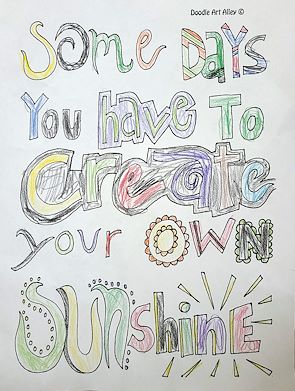 Doodle Art Alley ©
Some Days
You have To
Create
your OWN
SUNshiNE